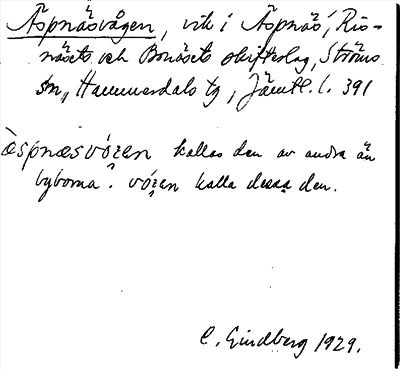 Äspnäsvågen, vik i Äspnäs, Ris-
näsets och Bonäsets skifteslag, Ströms
sn, Hammerdals tg, Jämtl. l. 391
äspnæsvózen kallas den av andra än
byborna. vózen kalla dessa den.
C. Lindberg 1929.